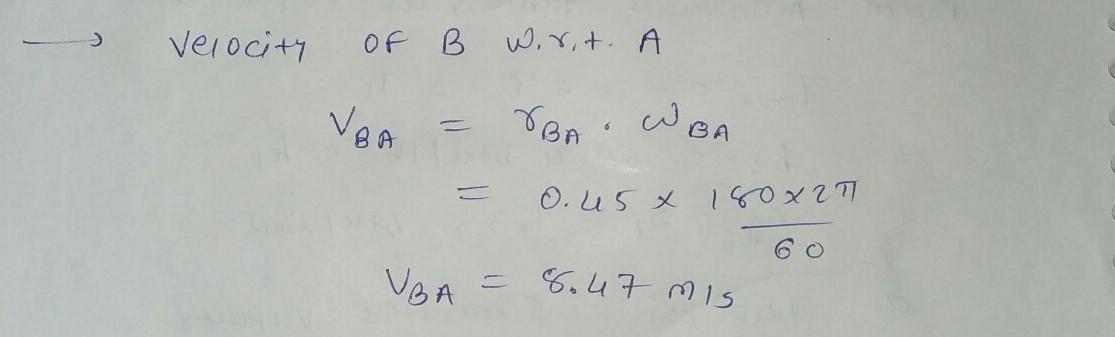 → Velocity OF B w.r.t. A
V_BA = r_BA . ω_BA
= 0.45 × 180×2π
60
V_BA = 8.47 m/s